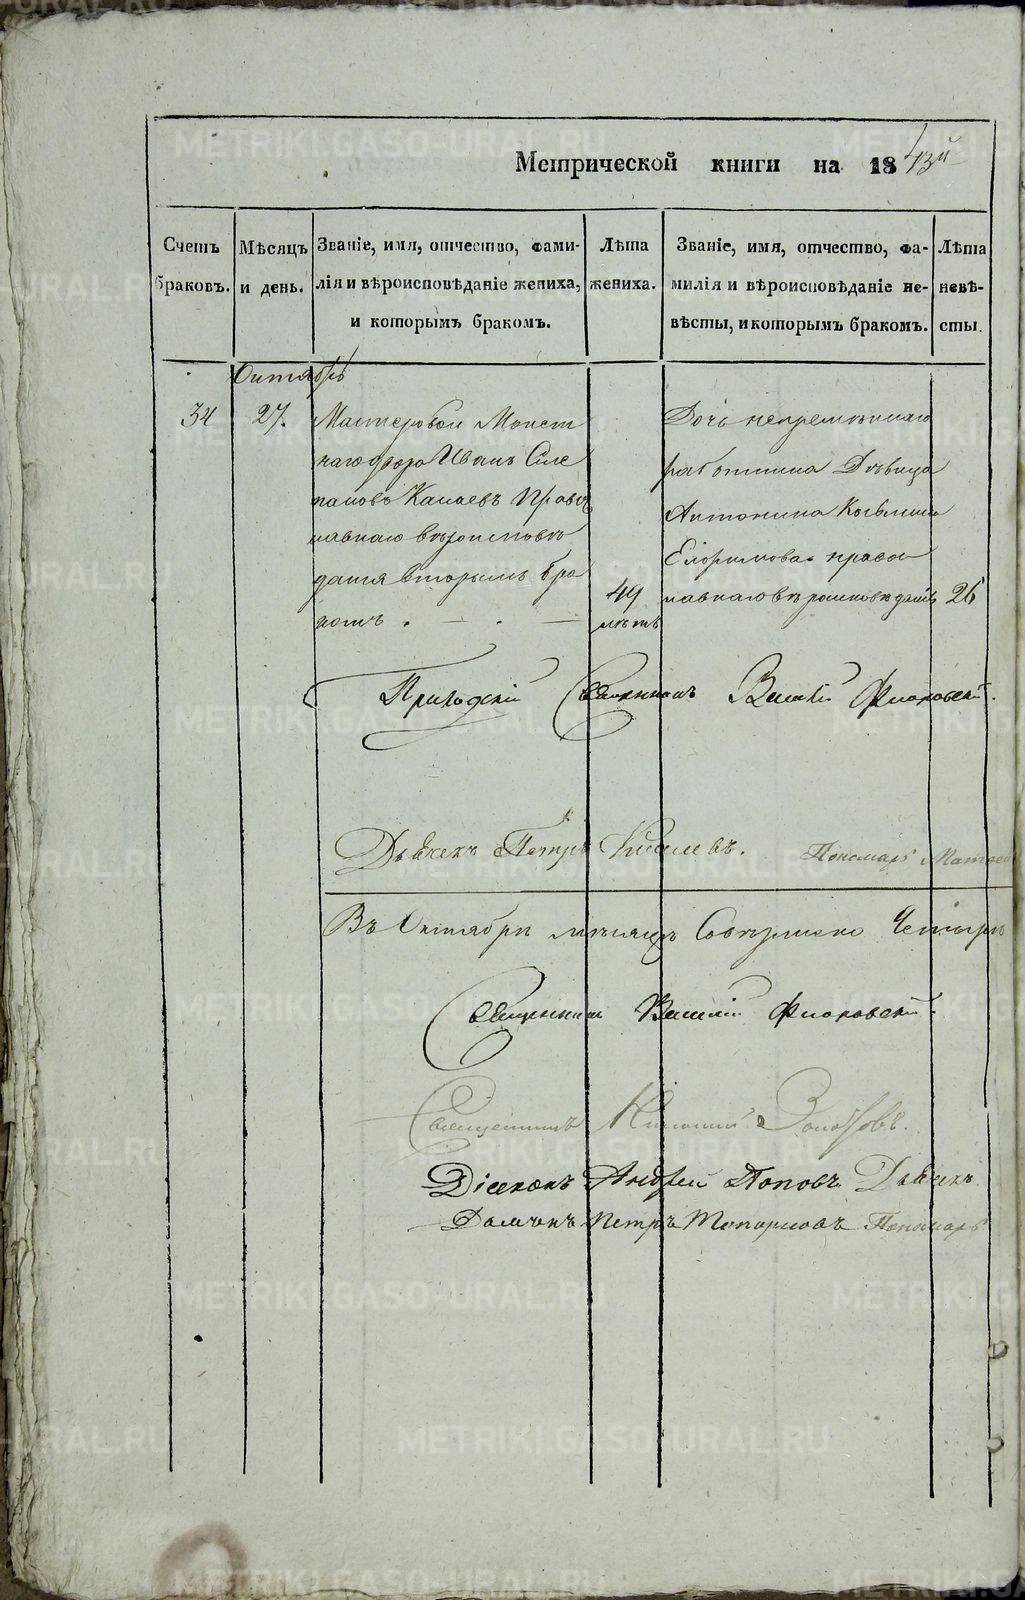 Метрической книги на 18
Счетъ браковъ.
Мѣсяцъ и день.
Званіе, имя, отчество, фами-
лія и вѣроисповѣданіе жениха,
и которымъ бракомъ.
Лѣта
жениха.
Званіе, имя, отчество, фа-
милія и вѣроисповѣданіе не-
вѣсты, и которымъ бракомъ.
Лѣта
невѣ-
сты.
Октябрь
34
27.
Мастеровой Монет
наго двора Иванъ Сте
пановъ Канаевъ Правос
лавнаго вѣроисповѣ
данія вторымъ бра
комъ.
49
лѣтъ
Дочь непремѣннаго
работника Дѣвица
Антонина Козьмина
права
славнаго вѣроисповѣданія
26
Приходскій Священникъ Василій Фиоровскій.
Дьячекъ Петръ Киселевъ. Пономарь
Въ Октябрѣ мѣсяцѣ Совершено Четыре
Священникъ Василій Фиоровскій.
Священникъ
Діаконъ Андрей Поповъ Дьячекъ
Дьячекъ Петръ Топорковъ Пономарь
METRIKI.GASO-URAL.RU